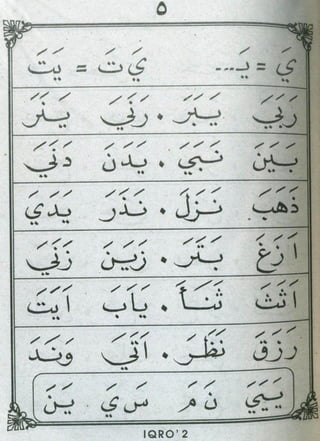 ٥
يَ = يَـ ... يَ تَ = يَتَ
رَبَيَ يَبَرَ . رَنَيَ يَنَرَ
بَيَنَ نَبَيَ . يَدَنَ دَنَيَ
ذَهَبَ نَزَلَ . نَذَرَ يَدَيَ
اَزَغَ بَتَرَ . زَيَنَ زَنَيَ
اَثَثَ ثَنَأَ . يَابَ اَيَتَ
رَزَقَ نَظَرَ . اَتَيَ وَنَدَ
يَيَيَ نَ مَ سَ يَ يَنَ
IQRO' 2